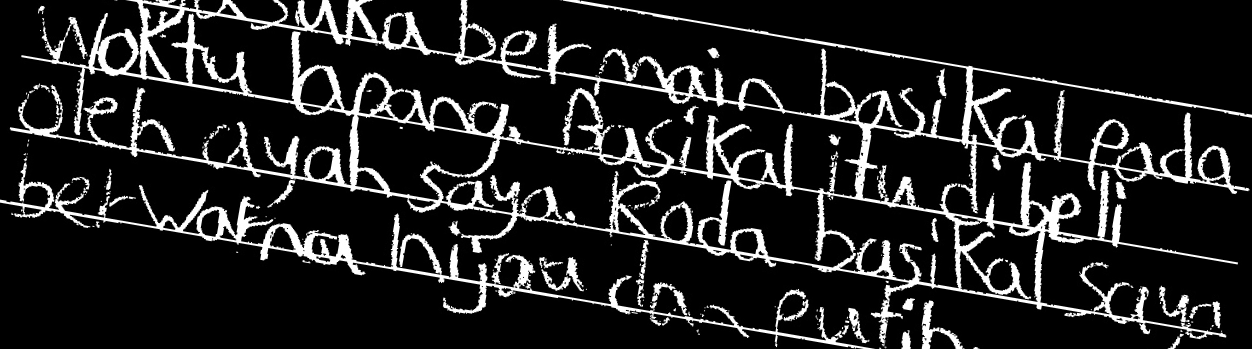 suka bermain basikal pada
waktu lapang. Basikal itu dibeli
oleh ayah saya. Roda basikal saya
berwarna hijau dan putih.